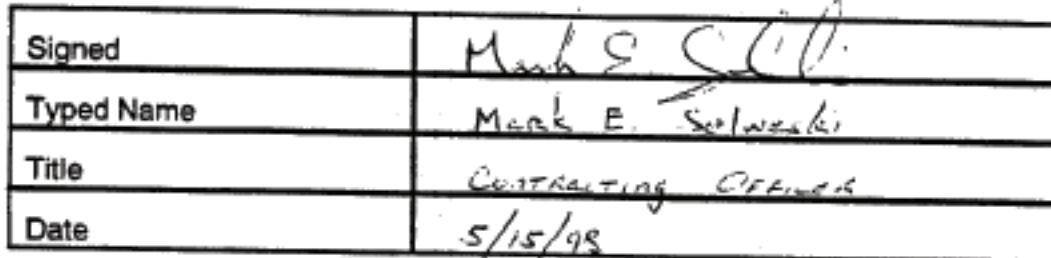 Signed Mark E.
Typed Name Mark E. Solweski
Title Contracting Officer
Date 5/15/98